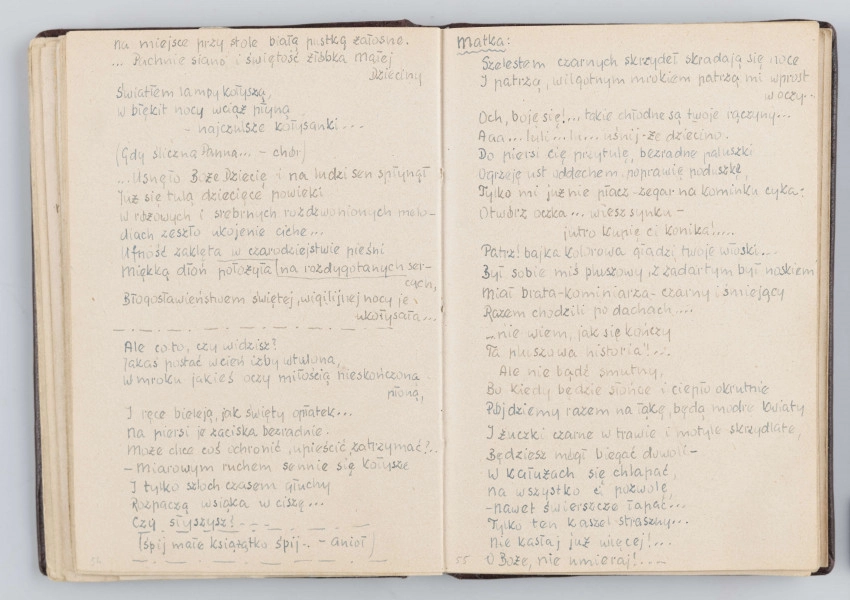 na miejsce przy stole białą pustką żałosne.
... Puchnie siano i świętość żłóbka małej
Dzieciny
Światłem lampy kołyszą,
w błękit nocy wciąż płyną
- najczulsze kołysanki...
(Gdy śliczna Panna... - chór)
...Usnęło Boże Dziecię i na ludzi sen spłynął
Już się tulą dziecięce powieki
W różowych i srebrnych rozdzwonionych melo-
diach zeszło ukojenie ciche...
Ufność zaklęta w czarodziejstwie pieśni
Miękką dłoń położyła na rozdygotanych ser-
cach,
Błogosławieństwem świętej, wigilijnej nocy je
ukołysała...
Ale co to, czy widzisz?
Jakaś postać w cień izby wtulona,
W mroku jakieś oczy miłością nieskończoną
płoną,
I ręce bieleją, jak święty opłatek...
Na piersi je zaciska bezradnie.
Może chce coś ochronić, upieścić, zatrzymać?..
- Miarowym ruchem sennie się kołysze
I tylko szloch czasem głuchy
Rozpaczą wsiąka w ciszę...
Czy słyszysz?...
(śpij małe książątko śpij.. - anioł)
Matka:
Szelestem czarnych skrzydeł skradają się noce
I patrzą, wilgotnym mrokiem patrzą mi wprost
w oczy..
Och, boję się!... takie chłodne są twoje rączyny...
Aaa... luli... la... uśnij-że dziecino.
Do piersi cię przytulę, bezradne paluszki
Ogrzeję ust oddechem, poprawię poduszkę,
Tylko mi już nie płacz - zegar na kominku cyka:
Otwórz oczka... wiesz synku -
jutro kupię ci konika!....
Patrz! bajka kolorowa gładzi twoje włoski...
Był sobie miś pluszowy, z zadartym był noskiem
Miał brata-kominiarza - czarny i śmiejący
Razem chodzili po dachach....
...nie wiem, jak się kończy
Ta pluszowa historia!...
Ale nie bądź smutny,
Bo kiedy będzie słońce i ciepło okrutnie
Pójdziemy razem na łąkę, będą modre kwiaty
I żuczki czarne w trawie i motyle skrzydlate,
Będziesz mógł biegać dowoli -
W kałużach się chlapać,
na wszystko ci pozwolę,
- nawet świerszcze łapać...
Tylko ten kaszel straszny...
nie kasłaj już więcej!...
O Boże, nie umieraj!....
55